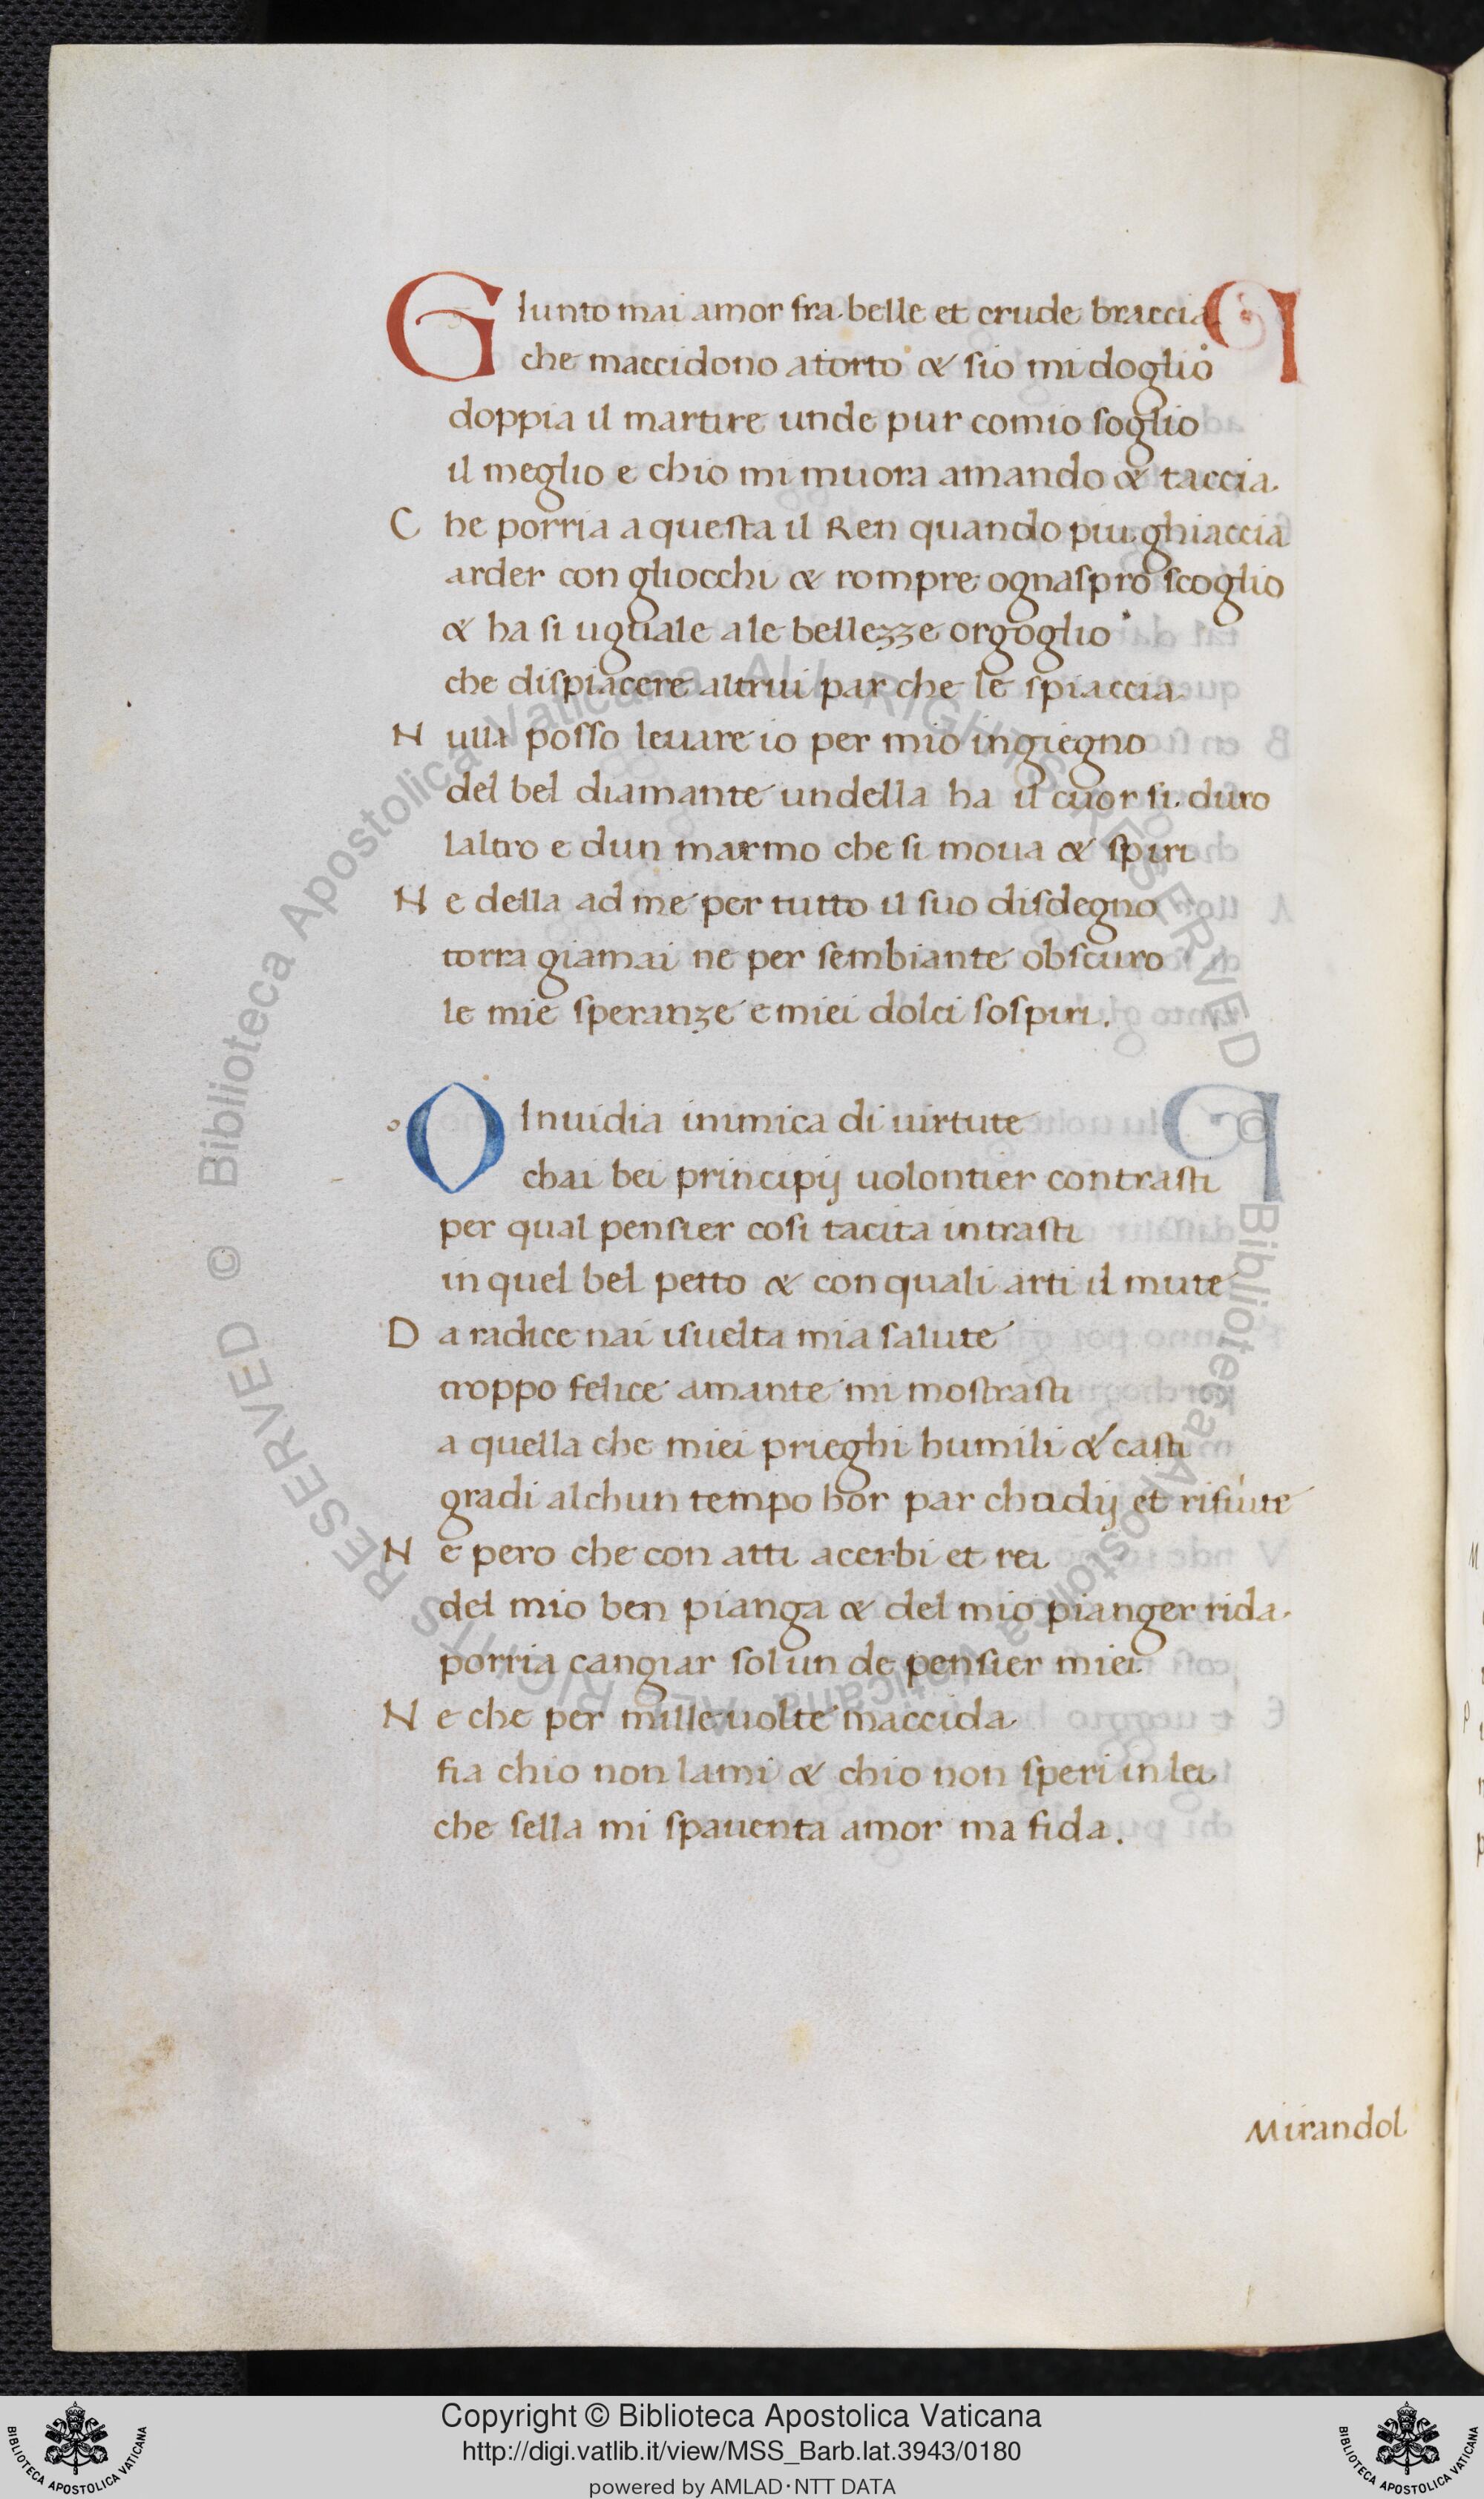 GIunto mai amor fra belle et crude braccia
che maccidono a torto & sio mi doglio
doppia il martire unde pur comio soglio
il meglio e chio mi muora amando & taccia
Che porria a questa il Ren quando piu ghiaccia
arder con gliocchi & rompre ognaspro scoglio
& ha si uguale a le bellezze orgoglio
che dispiacere altrui par che le spiaccia
Nulla posso leuare io per mio ingiegno
del bel diamante undella ha il cuor si duro
laltro e dun marmo che si moua & spiri
Ne della ad me per tutto il suo disdegno
torra giamai ne per sembiante obscuro
le mie speranze e miei dolci sospiri.
OInuidia inimica di uirtute
chai bei principij uolontier contrasti
per qual pensier cosi tacita intrasti
in quel bel petto & con quali arti il mute
Da radice nai isuelta mia salute
troppo felice amante mi mostrasti
a quella che miei prieghi humili & casti
gradi alchun tempo hor par chodij et rifiute
Ne pero che con atti acerbi et rei
del mio ben pianga & del mio pianger rida
porria cangiar sol un de pensier miei
Ne che per mille uolte maccida
fia chio non lami & chio non speri in lei
che sella mi spauenta amor ma fida.
Mirandol
Biblioteca Apostolica Vaticana ALL RIGHTS RESERVED ©
Copyright © Biblioteca Apostolica Vaticana
http://digi.vatlib.it/view/MSS_Barb.lat.3943/0180
powered by AMLAD·NTT DATA
BIBLIOTECA APOSTOLICA VATICANA
BIBLIOTECA APOSTOLICA VATICANA